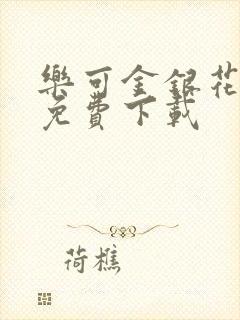 樂可金銀花
免費下載
荷樵